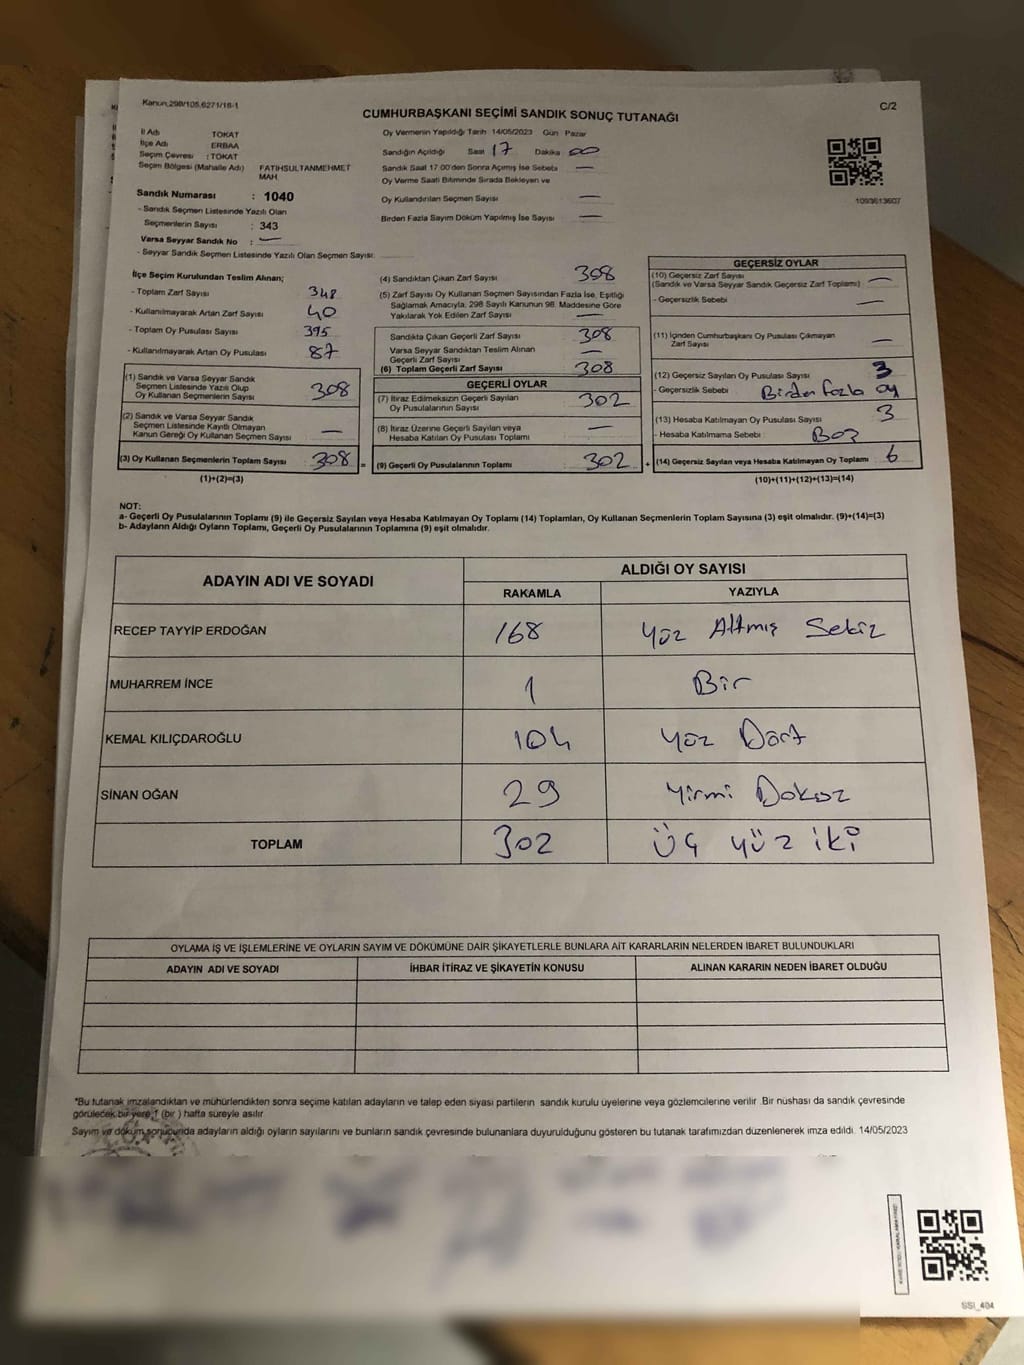 Kanun,298/105,6271/16-1
C/2
CUMHURBAŞKANI SEÇİMİ SANDIK SONUÇ TUTANAĞI
İl Adı TOKAT
İlçe Adı ERBAA
Seçim Çevresi : TOKAT
Seçim Bölgesi (Mahalle Adı) FATİHSULTANMEHMET MAH
Sandık Numarası : 1040
- Sandık Seçmen Listesinde Yazılı Olan
Seçmenlerin Sayısı : 343
Varsa Seyyar Sandık No : —
- Seyyar Sandık Seçmen Listesinde Yazılı Olan Seçmen Sayısı:
Oy Vermenin Yapıldığı Tarih 14/05/2023 Gün Pazar
Sandığın Açıldığı Saat 17 Dakika 00
Sandık Saat 17:00'den Sonra Açımış İse Sebebi —
Oy Verme Saati Bitiminde Sırada Bekleyen ve
Oy Kullandırılan Seçmen Sayısı —
Birden Fazla Sayım Döküm Yapılmış İse Sayısı —
1093613607
İlçe Seçim Kurulundan Teslim Alınan;
- Toplam Zarf Sayısı 348
- Kullanılmayarak Artan Zarf Sayısı 40
- Toplam Oy Pusulası Sayısı 395
- Kullanılmayarak Artan Oy Pusulası 87
(1) Sandık ve Varsa Seyyar Sandık
Seçmen Listesinde Yazılı Olup
Oy Kullanan Seçmenlerin Sayısı 308
(2) Sandık ve Varsa Seyyar Sandık
Seçmen Listesinde Kayıtlı Olmayan
Kanun Gereği Oy Kullanan Seçmen Sayısı —
(3) Oy Kullanan Seçmenlerin Toplam Sayısı 308 =
(1)+(2)=(3)
(4) Sandıktan Çıkan Zarf Sayısı 308
(5) Zarf Sayısı Oy Kullanan Seçmen Sayısından Fazla İse, Eşitliği
Sağlamak Amacıyla, 298 Sayılı Kanunun 98. Maddesine Göre
Yakılarak Yok Edilen Zarf Sayısı —
Sandıkta Çıkan Geçerli Zarf Sayısı 308
Varsa Seyyar Sandıktan Teslim Alınan
Geçerli Zarf Sayısı —
(6) Toplam Geçerli Zarf Sayısı 308
GEÇERLİ OYLAR
(7) İtiraz Edilmeksizin Geçerli Sayılan
Oy Pusulalarının Sayısı 302
(8) İtiraz Üzerine Geçerli Sayılan veya
Hesaba Katılan Oy Pusulası Toplamı —
(9) Geçerli Oy Pusulalarının Toplamı 302 +
GEÇERSİZ OYLAR
(10) Geçersiz Zarf Sayısı
(Sandık ve Varsa Seyyar Sandık Geçersiz Zarf Toplamı) —
- Geçersizlik Sebebi —
(11) İçinden Cumhurbaşkanı Oy Pusulası Çıkmayan
Zarf Sayısı —
(12) Geçersiz Sayılan Oy Pusulası Sayısı 3
- Geçersizlik Sebebi Birden fazla oy
(13) Hesaba Katılmayan Oy Pusulası Sayısı 3
- Hesaba Katılmama Sebebi : Boş
(14) Geçersiz Sayılan veya Hesaba Katılmayan Oy Toplamı 6
(10)+(11)+(12)+(13)=(14)
NOT:
a- Geçerli Oy Pusulalarının Toplamı (9) ile Geçersiz Sayılan veya Hesaba Katılmayan Oy Toplamı (14) Toplamları, Oy Kullanan Seçmenlerin Toplam Sayısına (3) eşit olmalıdır. (9)+(14)=(3)
b- Adayların Aldığı Oyların Toplamı, Geçerli Oy Pusulalarının Toplamına (9) eşit olmalıdır.
ADAYIN ADI VE SOYADI ALDIĞI OY SAYISI
RAKAMLA YAZIYLA
RECEP TAYYİP ERDOĞAN 168 Yüz Altmış Sekiz
MUHARREM İNCE 1 Bir
KEMAL KILIÇDAROĞLU 104 Yüz Dört
SİNAN OĞAN 29 Yirmi Dokuz
TOPLAM 302 Üç yüz iki
OYLAMA İŞ VE İŞLEMLERİNE VE OYLARIN SAYIM VE DÖKÜMÜNE DAİR ŞİKAYETLERLE BUNLARA AİT KARARLARIN NELERDEN İBARET BULUNDUKLARI
ADAYIN ADI VE SOYADI İHBAR İTİRAZ VE ŞİKAYETİN KONUSU ALINAN KARARIN NEDEN İBARET OLDUĞU
*Bu tutanak imzalandıktan ve mühürlendikten sonra seçime katılan adayların ve talep eden siyasi partilerin sandık kurulu üyelerine veya gözlemcilerine verilir .Bir nüshası da sandık çevresinde
görülecek bir yere 1 (bir ) hafta süreyle asılır
Sayım ve döküm sonucunda adayların aldığı oyların sayılarını ve bunların sandık çevresinde bulunanlara duyurulduğunu gösteren bu tutanak tarafımızdan düzenlenerek imza edildi. 14/05/2023
SSI_404